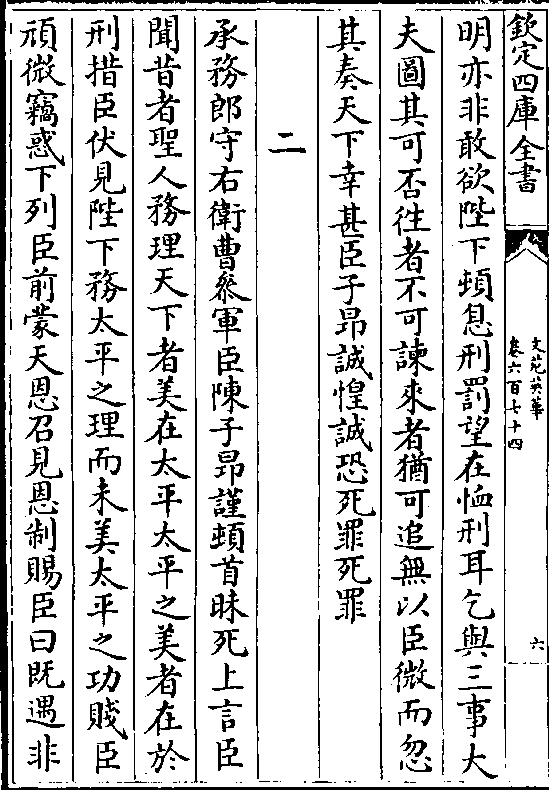 欽定四庫全書
文苑英華
卷六百七十四
六
明亦非敢欲陛下頓息刑罰望在恤刑耳乞與三事大
夫圖其可否徃者不可諫來者猶可追無以臣微而忽
其奏天下幸甚臣子昂誠惶誠恐死罪死罪
二
承務郎守右衛曹叅軍臣陳子昂謹頓首昧死上言臣
聞昔者聖人務理天下者美在太平太平之美者在於
刑措臣伏見陛下務太平之理而未美太平之功賤臣
頑微竊惑下列臣前蒙天恩召見恩制賜臣曰既遇非